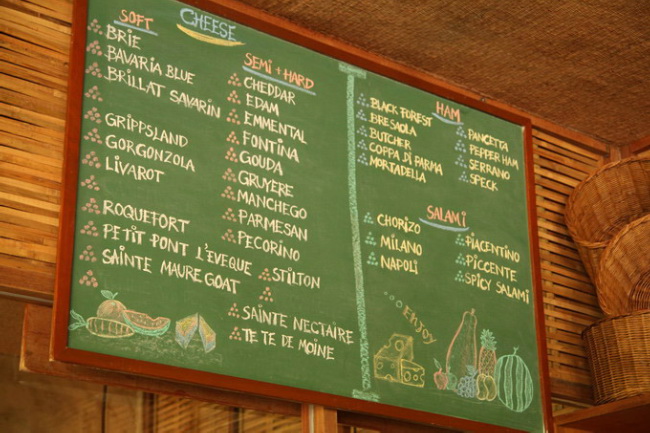 CHEESE
SOFT
BRIE
BAVARIA BLUE
BRILLAT SAVARIN
GRIPPSLAND
GORGONZOLA
LIVAROT
ROQUEFORT
PETIT PONT L'EVEQUE
SAINTE MAURE GOAT
SEMI + HARD
CHEDDAR
EDAM
EMMENTAL
FONTINA
GOUDA
GRUYERE
MANCHEGO
PARMESAN
PECORINO
STILTON
SAINTE NECTAIRE
TETE DE MOINE
HAM
BLACK FOREST
BRESAOLA
BUTCHER
COPPA DI PARMA
MORTADELLA
PANCETTA
PEPPER HAM
SERRANO
SPECK
SALAMI
CHORIZO
MILANO
NAPOLI
PIACENTINO
PICCENTE
SPICY SALAMI
ENJOY